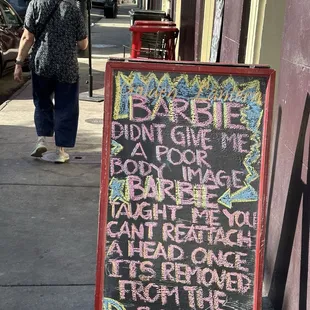 BARBIE
DIDNT GIVE ME
A POOR
BODY IMAGE
BARBIE
TAUGHT ME YOU
CANT REATTACH
A HEAD ONCE
ITS REMOVED
FROM THE